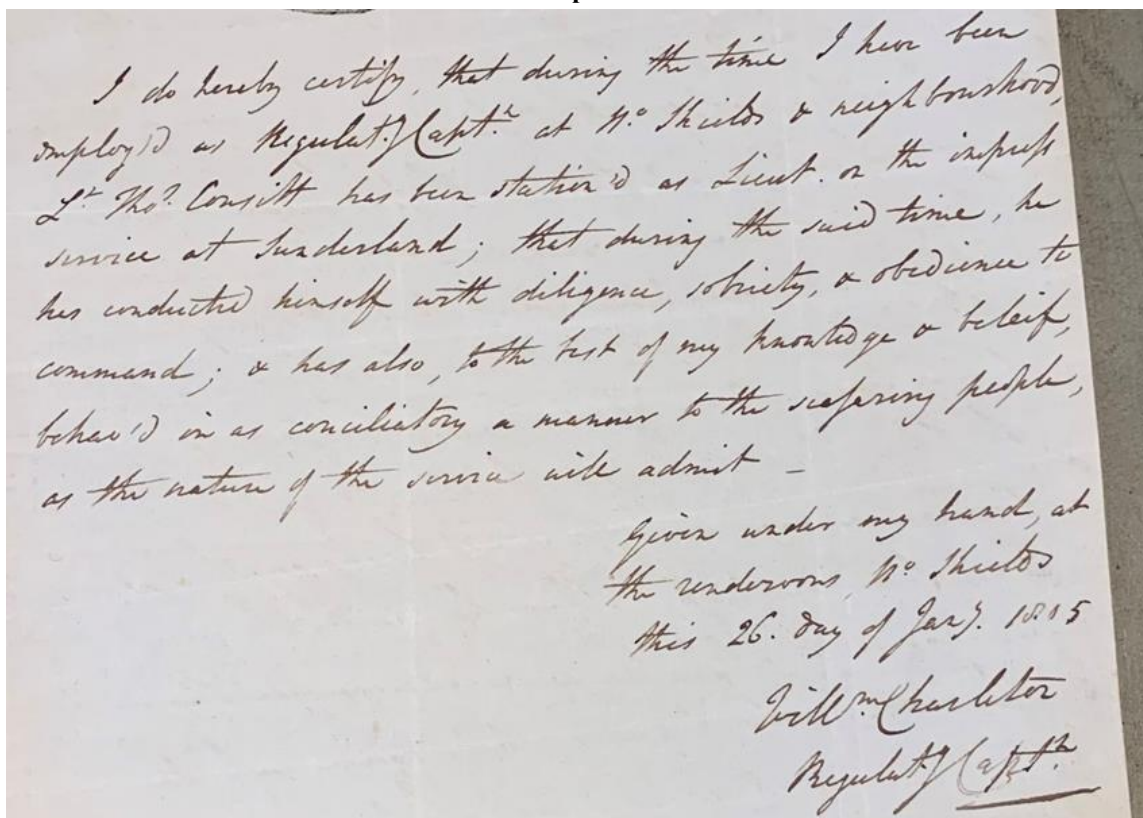 I do hereby certify, that during the time I have been
employ'd as Regulat.g Capt.n at No. Shields & neighbourhood,
Lt. Thos. Consitt has been station'd as Lieut. on the impress
service at Sunderland; that during the said time, he
has conducted himself with diligence, sobriety, & obedience to
command; & has also, to the best of my knowledge & beleif,
behav'd in as conciliatory a manner to the seafaring people,
as the nature of the service will admit –
Given under my hand, at
the rendezvous, No. Shields
this 26. day of Jany. 1815
Will.m Charleton
Regulat.g Capt.n